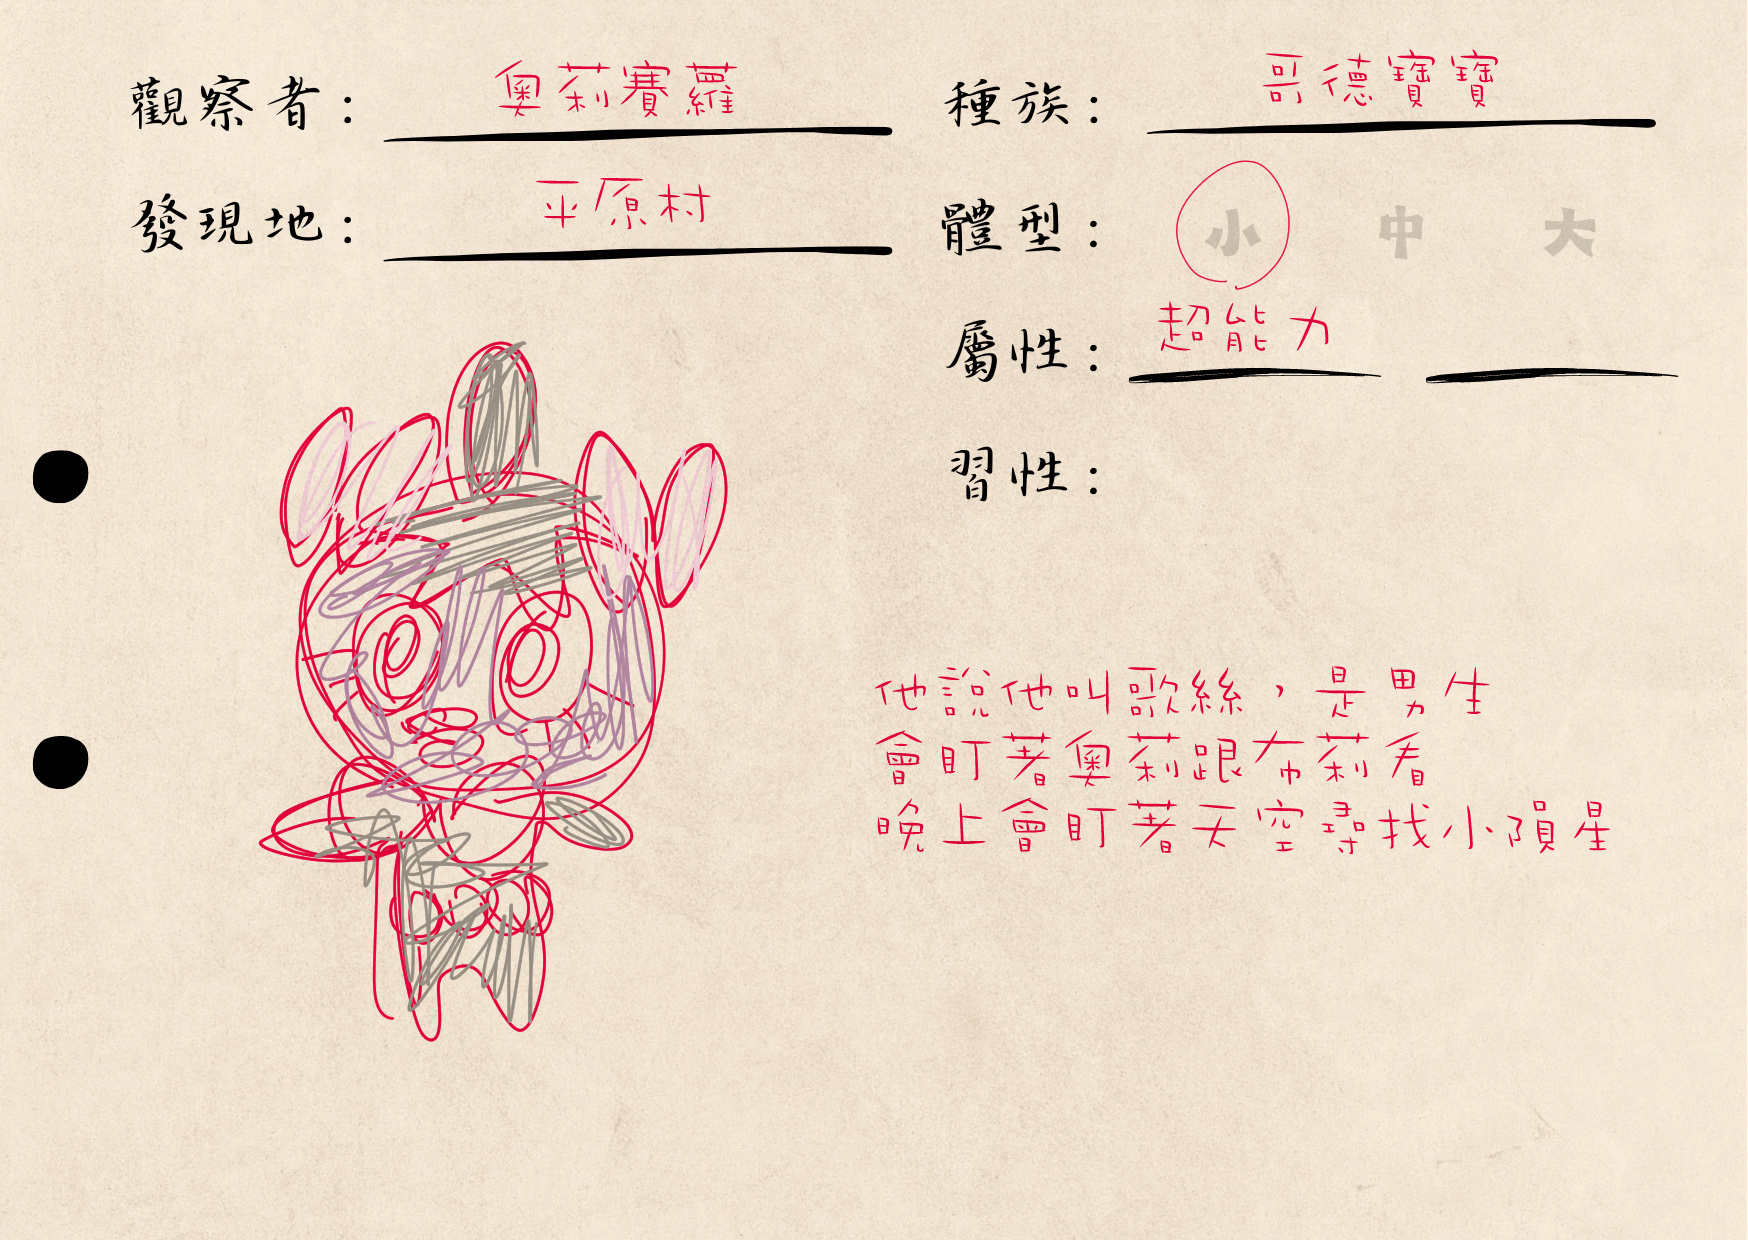 觀察者： 奧莉賽蘿
種族： 哥德寶寶
發現地： 平原村
體型： 小 中 大
屬性： 超能力
習性：
他說他叫歌絲，是男生
會盯著奧莉跟布莉看
晚上會盯著天空尋找小隕星